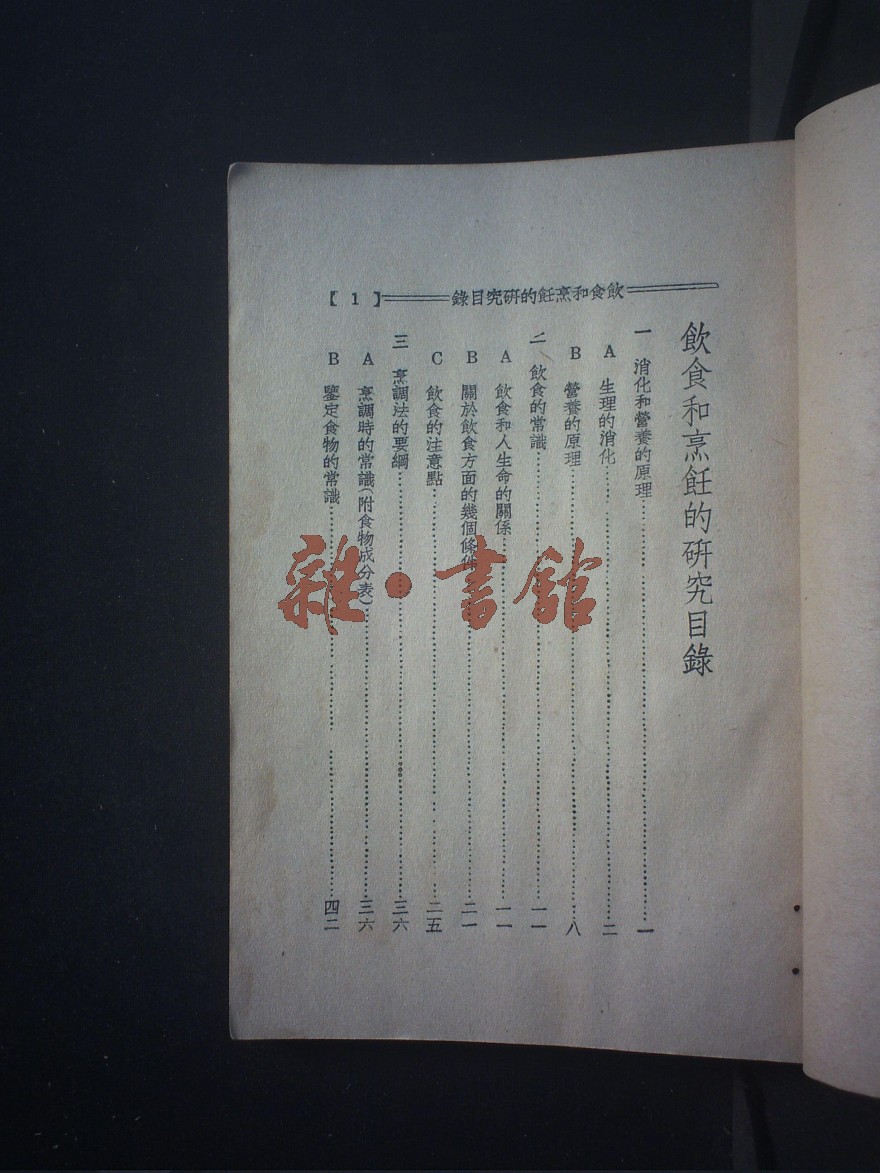 飲食和烹飪的研究目錄
【1】
飲食和烹飪的研究目錄
一 消化和營養的原理……一
A 生理的消化……二
B 營養的原理……八
二 飲食的常識……一一
A 飲食和人生命的關係……一一
B 關於飲食方面的幾個條件……二一
C 飲食的注意點……二五
三 烹調法的要綱……三六
A 烹調時的常識(附食物成分表)……三六
B 鑒定食物的常識……四二
雜·書館